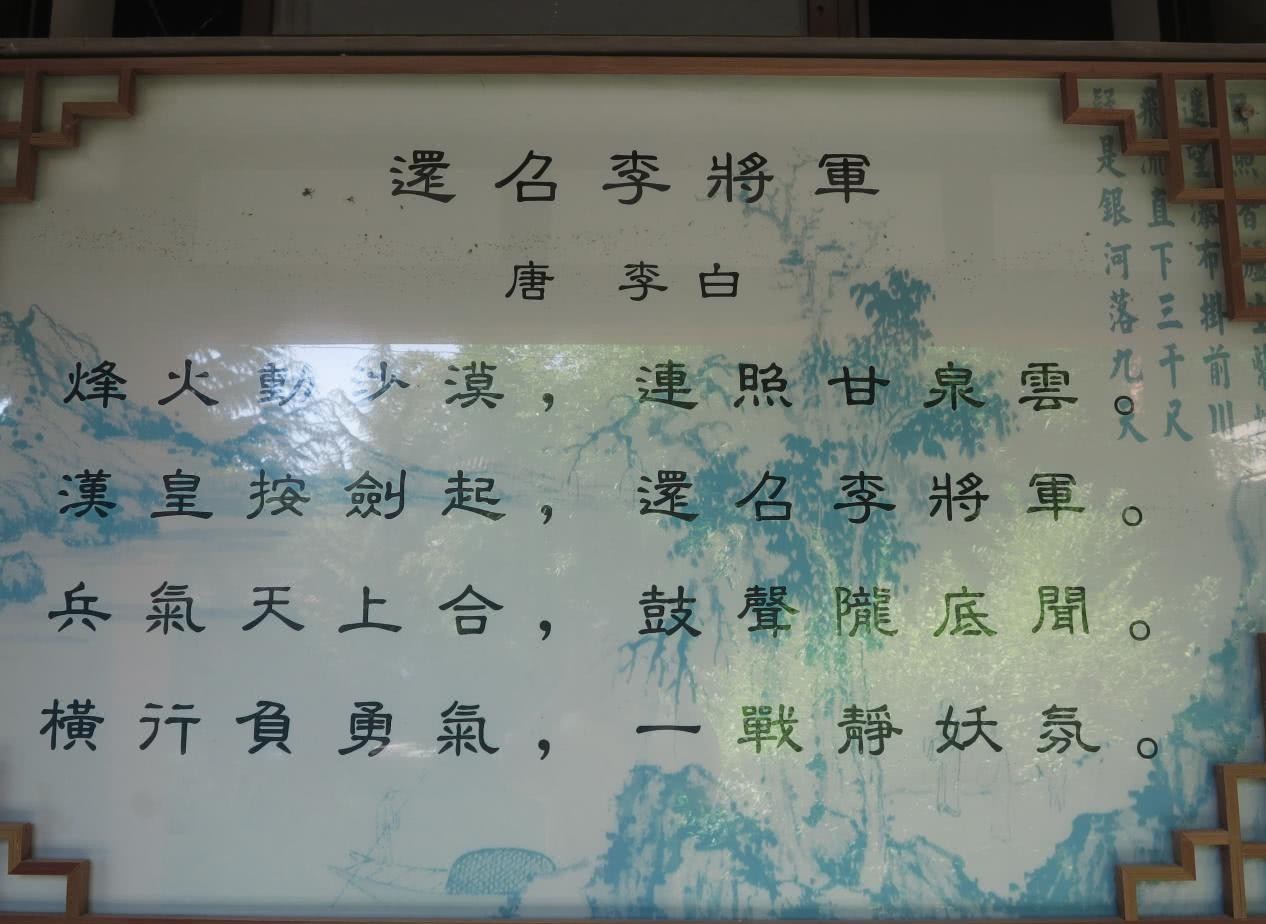 還召李將軍
唐 李白
烽火動沙漠，連照甘泉雲。
漢皇按劍起，還召李將軍。
兵氣天上合，鼓聲隴底聞。
橫行負勇氣，一戰靜妖氛。
照香爐
遙望瀑布掛前川
飛流直下三千尺
疑是銀河落九天